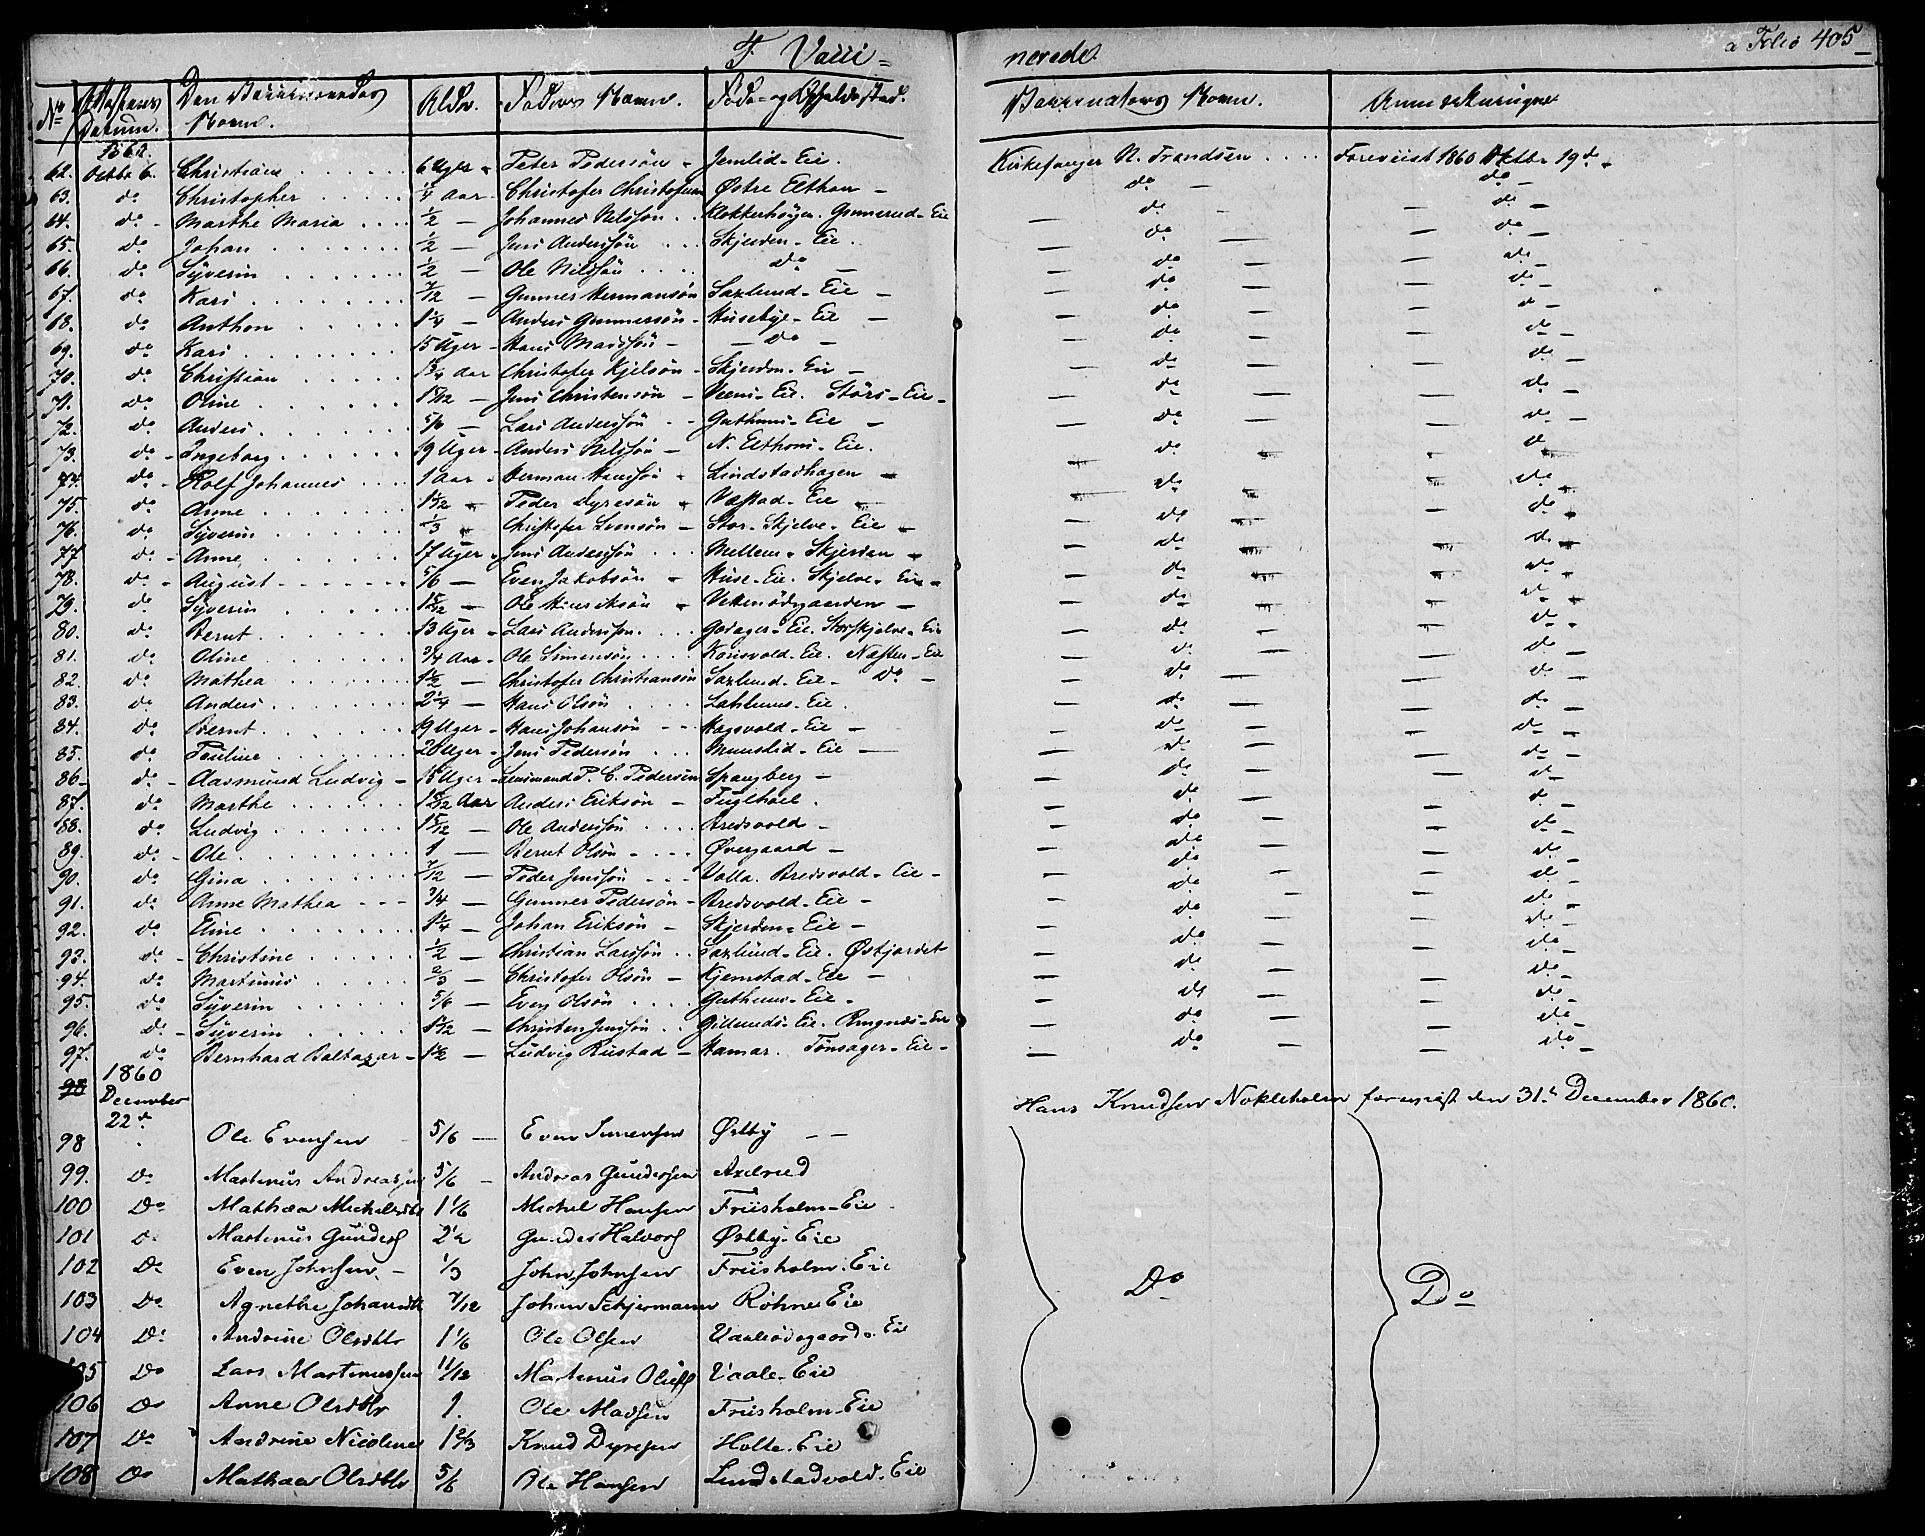 F. Vacci= nerede. a Folio 405
No Attestens Datum. Den Vaccineredes Navn. Alder. Faders Navn. Føde- og Opholdssted. Vaccinateurs Navn. Anmærkninger
1860.
62. Octbr 6. Christian 6 Uger - Peter Pedersön - Jemlid-Eie. Kirkesanger N. Frandsen Foreviist 1860 Oktbr 19d.
63. do Christopher 1/4 Aar. Christofer Østre Elthon - do - do -
64. do - Marthe Maria 1/2 - Johannes Nilssön Klokkerhögen. Gunnerud-Eie - do - - do -
65. do Johan 1/2 - Jens Anderssön Skjerden-Eie. - do - - do -
66. do Syverin 1/2 - Ole Nilssön do - - do - - do -
67. do Kari 7/12 - Gunner Hermansön Saxlund-Eie - - do - - do -
68. do Anthon 1 1/4 - Anders Gunnersön - Husebye-Eie - - do - - do -
69. do Kari 15 Uger - Hans Madssön - - do - - do - - do -
70. do Christian 1 3/4 Aar Christofer Kjelsön - Skjerden-Eie - - do - - do -
71. do Oline 1 5/12 - Jens Christensön - Veens-Eie. Störs-Eie - - do - - do -
72. do Anders 5/6 - Lars Anderssön - Guthuus-Eie - - do - - do -
73. do - Ingeborg 19 Uger - Anders Nilssön - N. Elthons-Eie. - do - - do -
74. do - Rolf Johannes 1 Aar - Herman Hanssön - Lindstadhagen - - do - - do -
75. do Anne - Peder Syversön - Væstad-Eie - - do - - do -
76. do Syverin 1/3 - Christofer Svensön - Stor-Skjelve-Eie - - do - - do -
77. do - Anne 17 Uger - Jens Anderssön Mellem-Skjerden - - do - - do -
78. do - August 5/6 - Even Jakobsön - Huse-Eie. Skjelve-Eie - - do - - do -
79. do Syverin 1 5/12 - Ole Henriksön - - - do - - do -
80. do Bernt 13 Uger - Lars Anderssön. Godager-Eie. Storskjelve-Eie - do - - do -
81. do Oline 3/4 Aar - Ole Simensön Korsvold-Eie. Næsten-Eie - do - - do -
82. do Mathea 1 1/2 - Christofer Christiansön Saxlund-Eie - do - - do - - do -
83. do Anders 2 1/4 - Hans Olsön Lahluus-Eie. - do - - do -
84. do Bernt 19 Uger - Hans Johansön - Hagsvold-Eie - - do - - do -
85. do Pauline 20 Uger - Jens Pedersön Munslid-Eie - - do - - do -
86 - do - Aasmund Ludvig - 15 Uger - Lensmand P. C. Pedersen Spangberg - - do - - do -
87. do Marthe 1 5/12 Aar Anders Eriksön - Fuglhoel. - do - - do -
88. do Ludvig 1 5/12 - Ole Anderssön Bredsvold - - do - - do -
89. do - Ole 1 - Bernt Olsön Øvergaard - - do - - do -
90. do Gina 7/12 - Peder Jenssön Volla. Bredsvold-Eie - - do - - do -
91. do Anne Mathea 3/4 - Gunner Pedersön - Bredsvold-Eie - - do - - do -
92. do Eline 1 1/4 - Johan Eriksön - Skjerden-Eie - - do - - do -
93. do - Christine 1/2 - Christian Larssön Saxlund-Eie. Østjordet - do - - do -
94. do Martinus 2/3 - Christofer Olsön - Kjemstad-Eie - - do - - do -
95. do Syverin 5/6 - Even Olsön Guthuus-Eie - - do - - do -
96. do - Syverin 1 1/2 - Christen Jenssön Gillunds-Eie. Ringnæs-Eie - do - - do -
97. do Bernhard Baltazar - 1 1/2 - Ludvig Rustad - Hamar. Tönsager-Eie - - do - - do -
98 1860 December 22d
Hans Knudsen Nokleholm foreviist den 31t December 1860.
98 Ole Evensen 5/6 - Even Simensen Østby - -
99. Do Martinus Andreassen 5/6 - Andreas Gundersen Axelrud
100 Do Mathea Mickelsdtr 1 1/6 Mickel Hansen Friisholm-Eie
101 Do Martinus Gunders 2 1/2 Gunder Halvors Østby-Eie
102 Do Even Johnsen - 1/3 John Johnsen Friisholm-Eie Do Do
103 Do Agnethe Johansdtr 7/12 Johan Schjermann Rohne Eie
104 Do Andrine Olsdtr 1 1/6 Ole Olsen Vaaleödegaard-Eie
105 Do Lars Martinussen 11/12 Martinus Vaale-Eie
106 Do Anne Olsdtr 1. Ole Madsen Friisholm-Eie
107 Do Andrine Nicoline 1 2/3 Knud Dyresen Holte-Eie
108 Do Mathea Olsdtr 5/6 Ole Hansen Lundstadvold-Eie